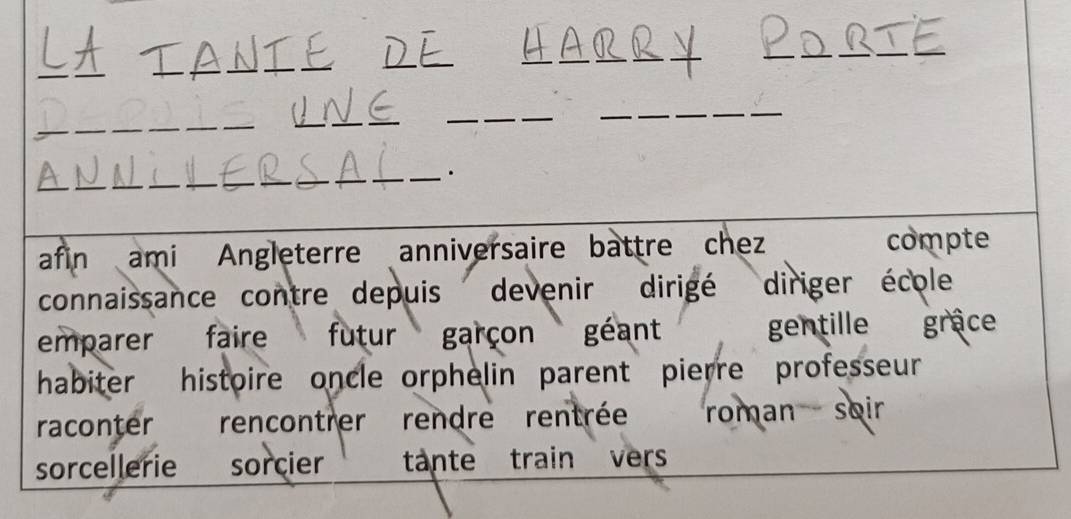 LA TANTE DE HARRY PORTE
DEPUIS UNE ___ _____
ANNIVERSAI_.
afin ami Angleterre anniversaire battre chez compte
connaissance contre depuis devenir dirigé diriger école
emparer faire futur garçon géant gentille grâce
habiter histoire oncle orphelin parent pierre professeur
raconter rencontrer rendre rentrée roman soir
sorcellerie sorcier tante train vers